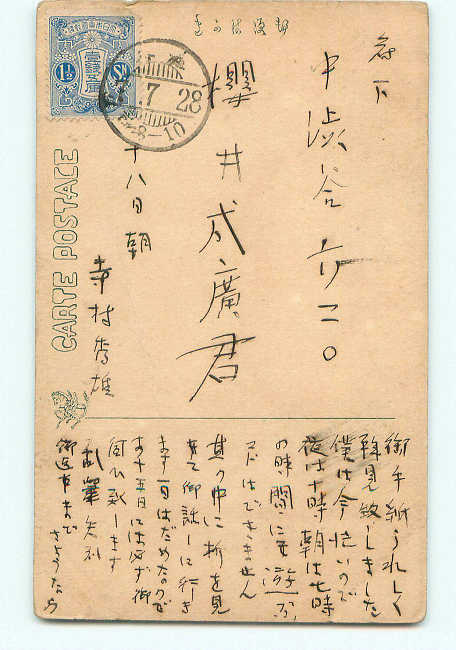 きがは便郵
府下
中渋谷六二〇
櫻井成廣君
十八日朝
寺村秀雄
CARTE POSTALE
1½ Sn
7 28
8-10
御手紙うれしく
拝見致しました
僕は今忙いので
夜は十時朝は七時
の時間にも遊ぶ
コトはできません
其の中に折を見
さて御話しに行き
ます一日はだめなので
十五日には必ず御
伺ひ致します
乱筆失礼
御返事まで
さようなら